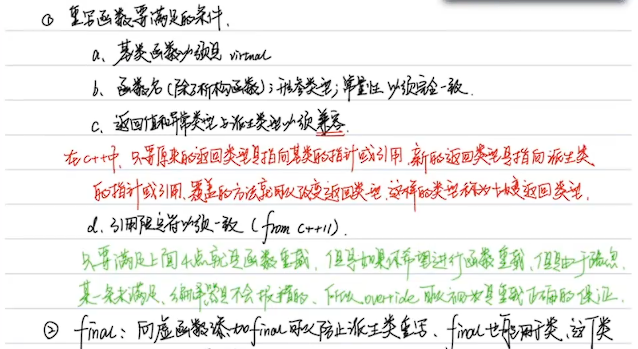 ① 重写函数要满足的条件.
a. 基类函数必须是 virtual
b. 函数名(除了析构函数); 形参类型; 常量性 必须完全一致.
c. 返回值和异常类型与派生类型必须兼容.
在c++中, 只要原来的返回类型是指向基类的指针或引用, 新的返回类型是指向派生类
的指针或引用, 覆盖的方法就可以改变返回类型. 这样的类型称为协变返回类型.
d. 引用限定符必须一致 (from C++11).
只要满足上面4点就是函数重载, 但是如果你希望进行函数重载, 但是由于疏忽
某一条未满足, 编译器是不会报错的, 所以override可以作为是重载正确的保证.
② final: 向虚函数添加final可以防止派生类重写. final也能用于类, 这个类